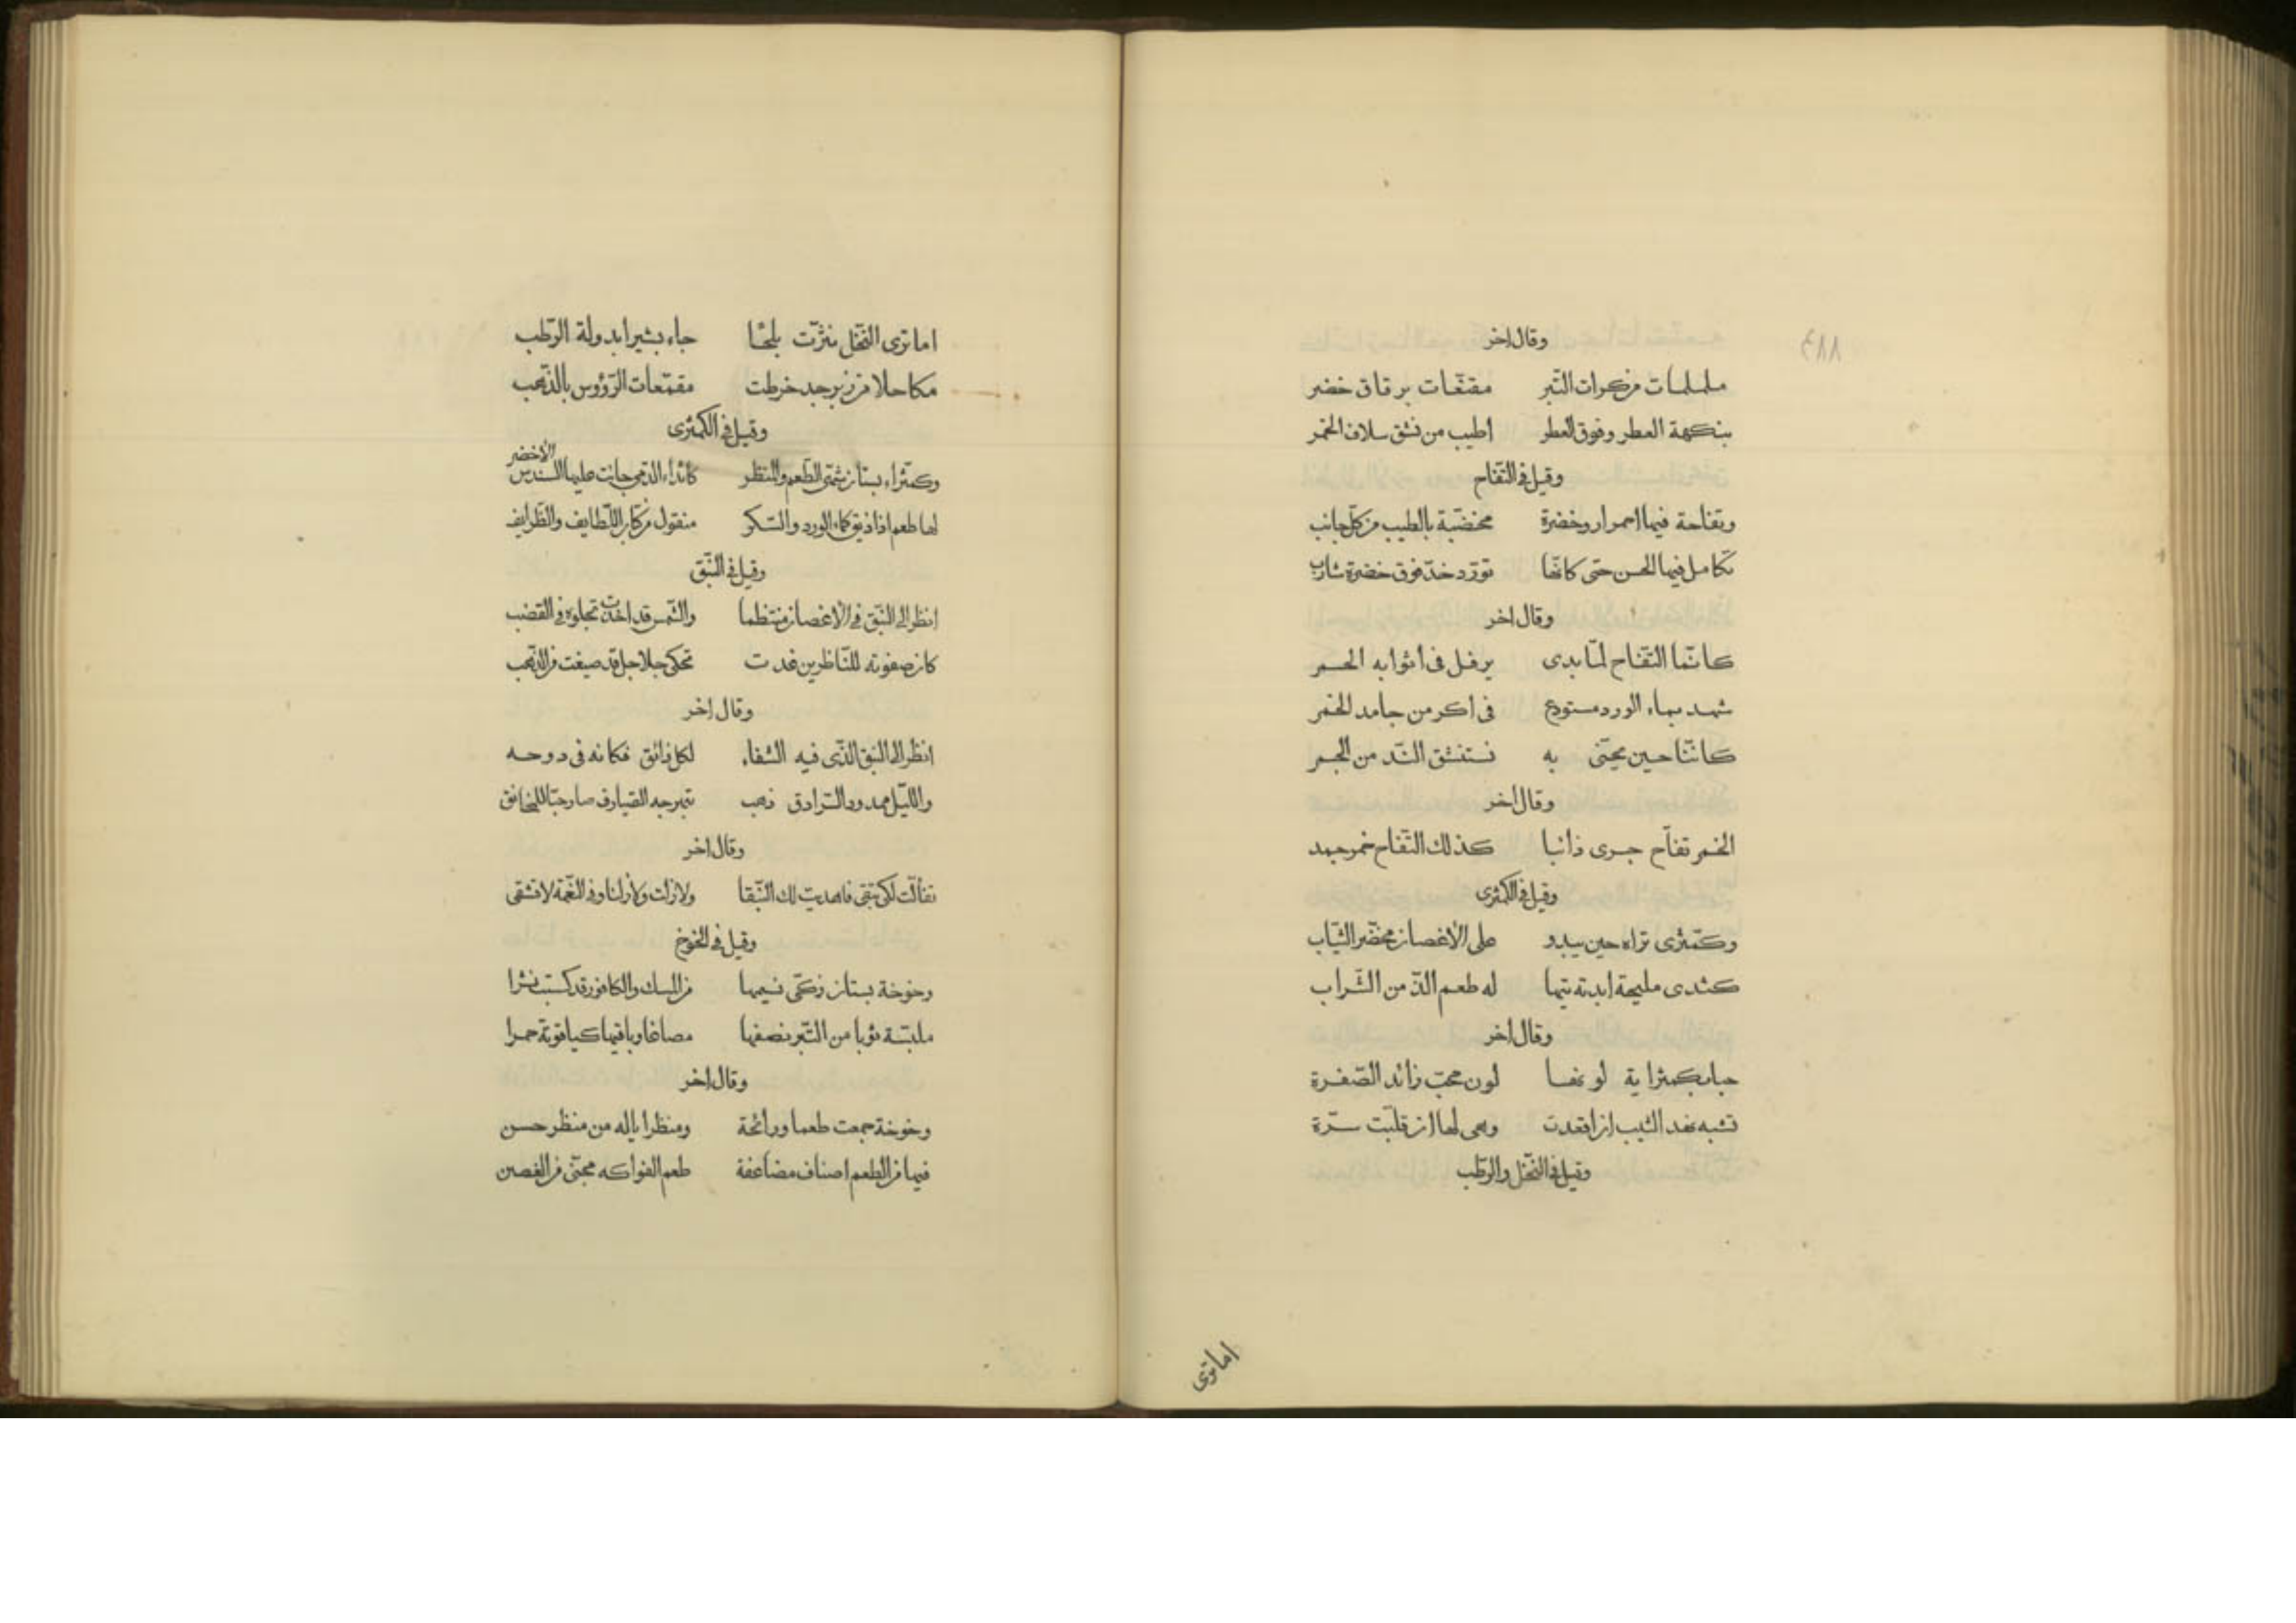 وقال اخر
ململمات من كرات التّبر مقنّعات برقاق خضر
بنكهة العطر وفوق العطر اطيب من نشق سلاف الخمر
وقيل فى التّفاح
وتفاحة فيها احمرار وخضرة مخضّبة بالطيب من كلّ جانب
تكامل فيها الحسن حتى كانّها تورّد خدّ فوق خضرة شارب
وقال اخر
كانّما التّفاح لمّا بدى يرفل فى اثوابه الحمر
شهد بماء الورد مستودع فى اكر من جامد الخمر
كانّنا حين يحيّى به نستنشق النّد من الجمر
وقال اخر
الخمر تفاّح جرى ذائبا كذلك التّفاح خمر جمد
وقيل فى الكمّثرى
وكمّثرى تراه حين يبدو على الأغصان مخضّر الثّياب
كثدى مليحة ابدته تيها له طعم الذّ من الشّراب
وقال اخر
حبا بكمثراية لونها لون محبّ زائد الصّفرة
تشبه نهد الثيب ان اقعدت وهى لها ان قلّبت سرّة
وقيل فى النّخل والرّطب
اما ترى
اما ترى النّخل نثرّت بلحًا جاء بشيرا بدولة الرّطب
مكاحلا من زبرجد خرطت مقمّعات الرّؤوس بالذّهب
وقيل فى الكمّثرى
وكمّثراء بستان شهّى الطّعم والمنظر عليها السّندس الأخضر
لها طعم اذا ذيق كماء الورد والسّكر منقول من كتاب اللّطايف والظّرايف
وقيل فى النّبق
انظر الى النّبق فى الأغصان منتظما والشّمس قد اخذت تجلوه فى القضب
كان صفوته للنّاظرين غدت تحكى جلاجل قد صيغت من الذّهب
وقال اخر
انظر الى النبق الّذى فيه الشفاء لكل ذائق فكانه فى دوحه
واللّيل ممدود السّرادق ذهب تبهرجه الصّيارف صار حبّا للمخانق
وقال اخر
تفألّت لكى تبقى فاهديت لك النّبقا ولا زلت ولا زلنا وفى النّعمة لا تشقى
وقيل فى الخوخ
وخوخة بستان زكّى نسيمها من المسك والكافور قد كسبت نشرا
ملبّسة ثوبا من التّبر نصفها مصاغا وباقيها كياقوتة حمرا
وقال اخر
وخوخة جمعت طعما ورائحة ومنظرا ياله من منظر حسن
فيها من الطعم اصناف مضاعفة طعم الفواكه مجنّى من الغصن